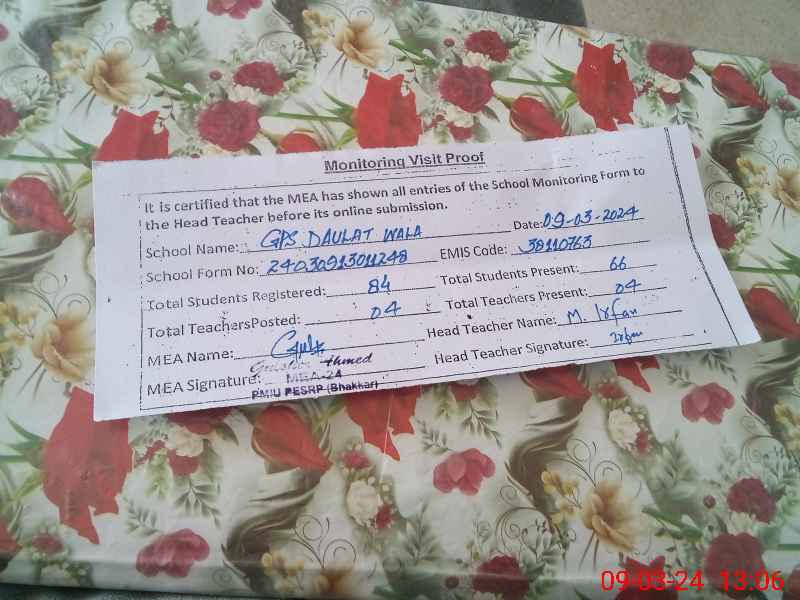 Monitoring Visit Proof
It is certified that the MEA has shown all entries of the School Monitoring Form to
the Head Teacher before its online submission.
School Name: GPS DAULAT WALA Date: 09-03-2024
School Form No: 24030913011248 EMIS Code: 38110763
Total Students Registered: 84 Total Students Present: 66
Total TeachersPosted: 04 Total Teachers Present: 04
MEA Name: Head Teacher Name: M. Irfan
MEA Signature: Ahmed Head Teacher Signature: Irfan
MEA-24
PMIU PESRP (Bhakkar)
09-03-24 13:06